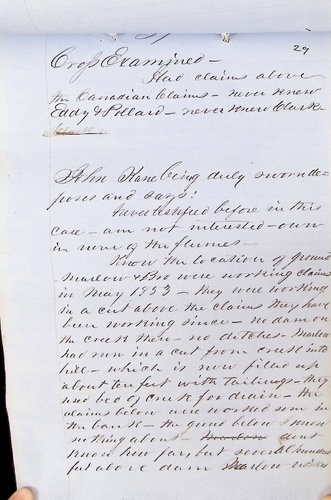 29
Cross Examined –
Had claims above
the Canadian Claims – never knew
Eddy & Pollard – never knew Clark
John Kane being duly sworn de-
poses and says:
Never testified before in this
case – am not interested – own
in none of the flumes –
Know the location of ground
Marlow & Bro were working claims
in May 1853 – they were working
in a cut above the claims they have
been working since – no dam on
the creek then – no ditches – Marlow
had run in a cut from creek into
hill – which is now filled up
about ten feet with tailings – they
used bed of creek for drain – the
claims below were worked some in
the bank – the ground below I know
nothing about – dont
know how far, but several hundred
feet above dam Marlow